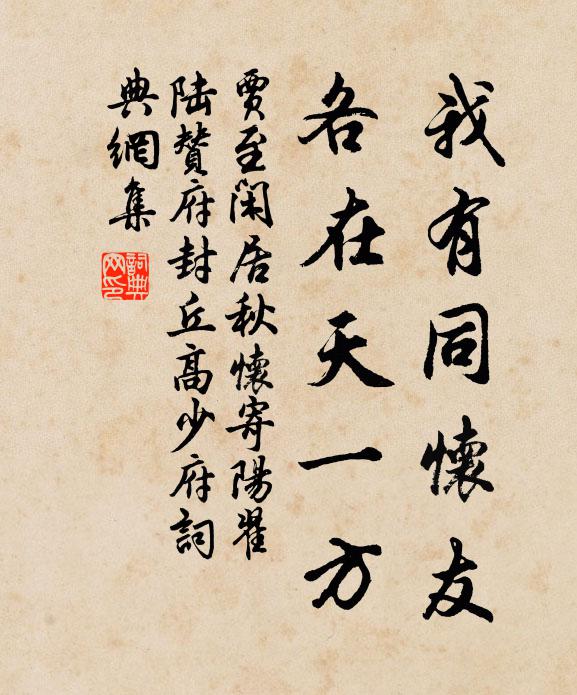 我有同懷友
各在天一方
賈至閑居秋懷寄陽翟
陸贊府封丘高少府詞
典網集
詞典
网印